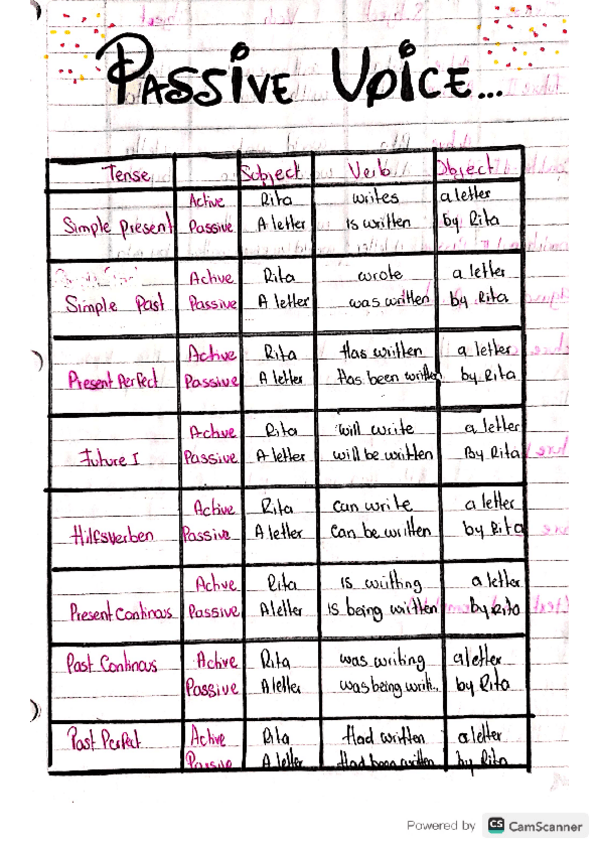 PASSIVE VOICE...
Tense Subject Verb Object
Active Rita writes a letter
Simple Present Passive A letter is written by Rita
Active Rita wrote a letter
Simple Past Passive A letter was written by Rita
Active Rita Has written a letter
Present Perfect Passive A letter Has been written by Rita
Active Rita will write a letter
Future I Passive A letter will be written By Rita
Active Rita can write a letter
Hilfsverben Passive A letter Can be written by Rita
Active Rita Is writting a letter
Present Continous Passive A letter is being written by Rita
Past Continous Active Rita was writing a letter
Passive A letter was being writ.. by Rita
Past Perfect Active Rita Had written a letter
Passive A letter Had been written by Rita
Powered by CS CamScanner